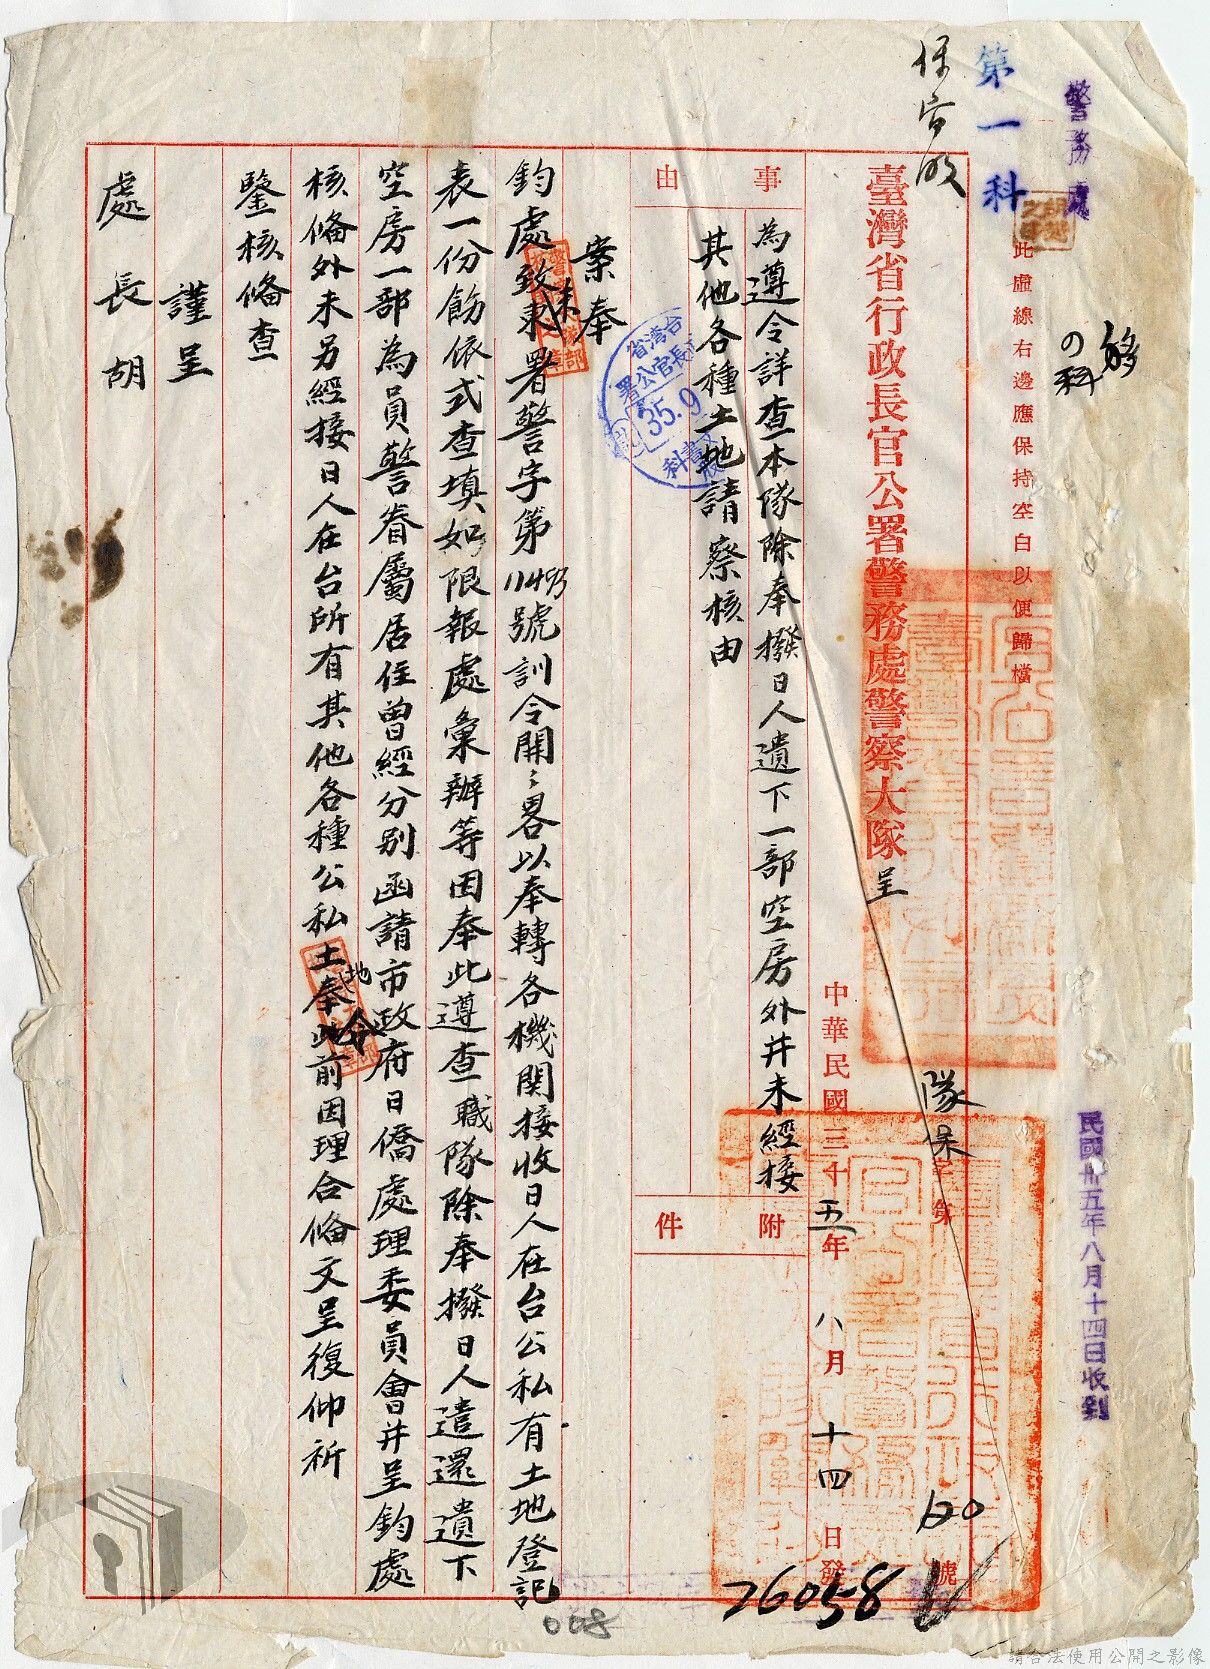 警務處
民國卅五年八月十四日收到
の科
此虛線右邊應保持空白以便歸檔
第一科
隊保字第
號
臺灣省行政長官公署警務處警察大隊呈
中華民國三十五年八月十四日發
26058
事由
為遵令詳查本隊除奉撥日人遺下一部空房外并未經接
其他各種土地請察核由
附件
台灣省
長官公署
35.9
案奉
鈞處致未署警字第11493號訓令開:畧以奉轉各機関接收日人在台公私有土地登記
表一份飭依式查填如限報處彙辦等因奉此遵查職隊除奉撥日人遣還遺下
空房一部為員警眷屬居住曾經分别函請市政府日僑處理委員會并呈鈞處
核俻外未另經接日人在台所有其他各種公私土地奉令前因理合俻文呈復仰祈
鑒核俻查
謹呈
處長胡
008
請合法使用公開之影像